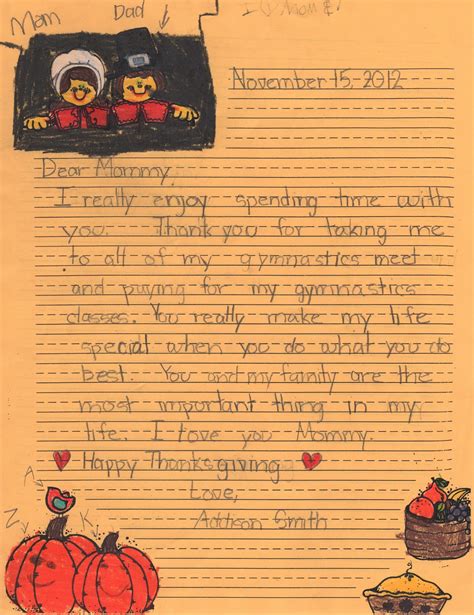 Mom
Dad
November 15, 2012
Dear Mommy,
I really enjoy spending time with
you. Thank you for taking me
to all of my gymnastics meet
and puying for my gymnastics
classes. You really make my life
special when you do what you do
best. You and my family are the
most important thing in my
life. I love you Mommy.
Happy Thanksgiving
Love,
Addison Smith
A
Z
K